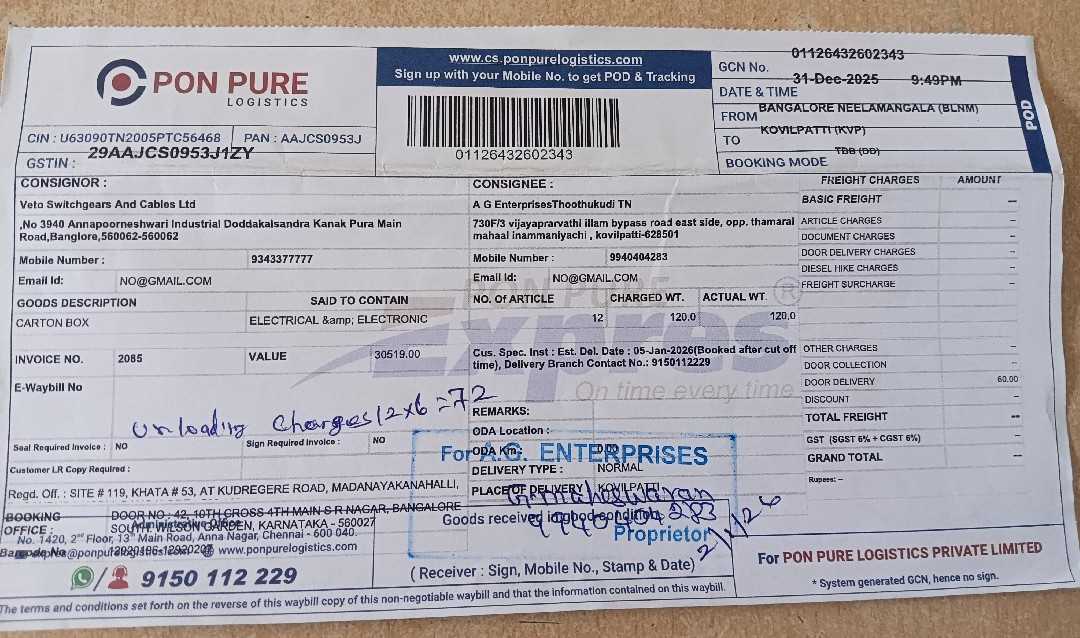 PON PURE
LOGISTICS
CIN : U63090TN2005PTC56468 PAN : AAJCS0953J
GSTIN : 29AAJCS0953J1ZY
www.cs.ponpurelogistics.com
Sign up with your Mobile No. to get POD & Tracking
01126432602343
GCN No. 01126432602343
DATE & TIME 31-Dec-2025 9:49PM
FROM BANGALORE NEELAMANGALA (BLNM)
TO KOVILPATTI (KVP)
BOOKING MODE TBB (DD)
POD
CONSIGNOR :
Veto Switchgears And Cables Ltd
,No 3940 Annapoorneshwari Industrial Doddakalsandra Kanak Pura Main
Road,Banglore,560062-560062
Mobile Number : 9343377777
Email Id: NO@GMAIL.COM
CONSIGNEE :
A G EnterprisesThoothukudi TN
730F/3 vijayaprarvathi illam bypass road east side, opp. thamarai
mahaal inammaniyachi , kovilpatti-628501
Mobile Number : 9940404283
Email Id: NO@GMAIL.COM
GOODS DESCRIPTION SAID TO CONTAIN NO. Of ARTICLE CHARGED WT. ACTUAL WT.
CARTON BOX ELECTRICAL &amp; ELECTRONIC 12 120.0 120.0
INVOICE NO. 2085 VALUE 30519.00
Cus. Spec. Inst : Est. Del. Date : 05-Jan-2026(Booked after cut off
time), Delivery Branch Contact No.: 9150112229
E-Waybill No
PON PURE
Expres
On time every time
®
unloading charges 12x6 = 72
Seal Required Invoice : NO Sign Required Invoice : NO
Customer LR Copy Required :
REMARKS:
ODA Location :
ODA Km :
DELIVERY TYPE : NORMAL
PLACE OF DELIVERY KOVILPATTI
FREIGHT CHARGES AMOUNT
BASIC FREIGHT --
ARTICLE CHARGES --
DOCUMENT CHARGES --
DOOR DELIVERY CHARGES --
DIESEL HIKE CHARGES --
FREIGHT SURCHARGE --
OTHER CHARGES --
DOOR COLLECTION --
DOOR DELIVERY 60.00
DISCOUNT --
TOTAL FREIGHT --
GST (SGST 6% + CGST 6%) --
GRAND TOTAL --
Rupees: --
For A.G. ENTERPRISES
9940404283
Proprietor
2/1/26
Goods received in good condition
(Receiver : Sign, Mobile No., Stamp & Date)
Regd. Off. : SITE # 119, KHATA # 53, AT KUDREGERE ROAD, MADANAYAKANAHALLI,
BOOKING OFFICE : DOOR NO : 42, 10TH CROSS 4TH MAIN S R NAGAR, BANGALORE
SOUTH, WILSON GARDEN, KARNATAKA - 560027
Administrative Office
No. 1420, 2nd Floor, 13th Main Road, Anna Nagar, Chennai - 600 040.
www.ponpurelogistics.com
9150 112 229
For PON PURE LOGISTICS PRIVATE LIMITED
* System generated GCN, hence no sign.
The terms and conditions set forth on the reverse of this waybill copy of this non-negotiable waybill and that the information contained on this waybill.